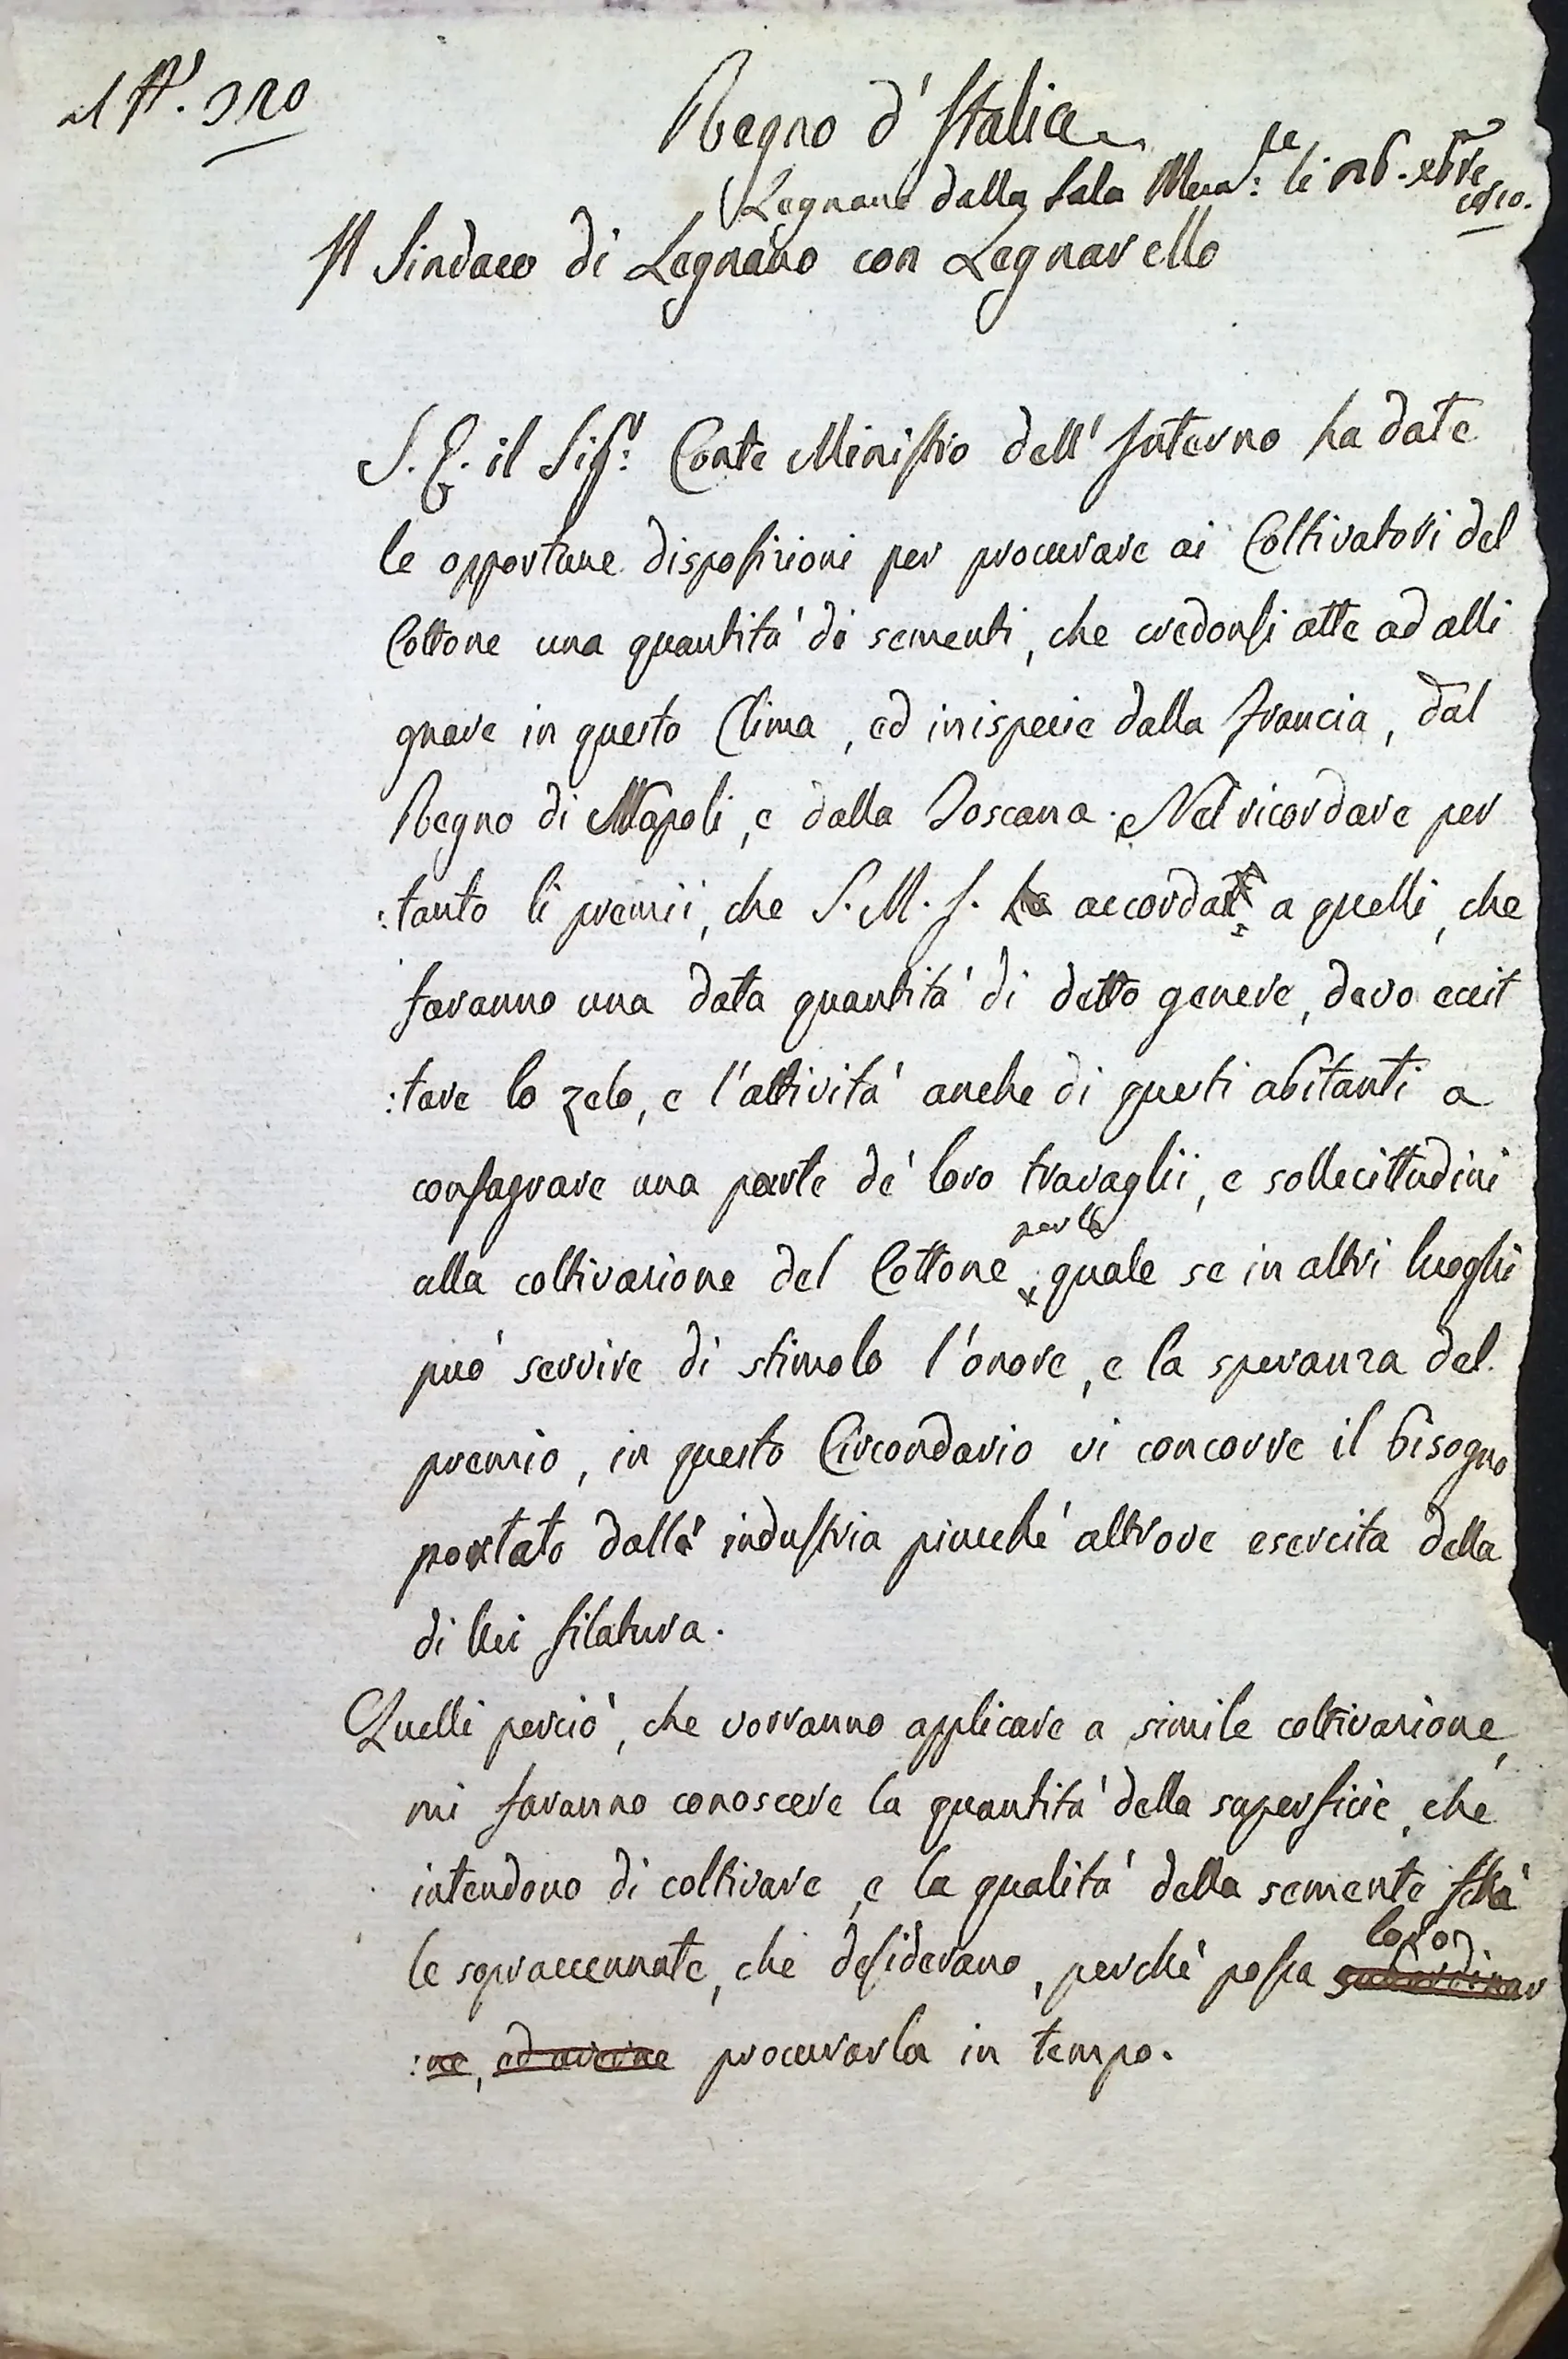 Regno d'Italia
Legnano dalla Sala
Il Sindaco di Legnano con Legnarello
S. E. il Sig.r Conte Ministro dell'Interno ha date
le opportune disposizioni per procurare ai Coltivatori del
Cottone una quantità di sementi, che credonsi atte ad alli
gnare in questo Clima, ed inispecie dalla Francia, dal
Regno di Napoli, e dalla Toscana. Nel ricordare per
:tanto li premii, che S. M. I. accordat a quelli, che
faranno una data quantità di detto genere, devo eccit
:tare lo zelo, e l'attività anche di questi abitanti a
consagrare una parte de' loro travaglii, e sollecittudini
alla coltivazione del Cottone per la quale se in altri luoghi
può servire di stimolo l'onore, e la speranza del
premio, in questo Circondario vi concorre il bisogno
portato dalla industria piucché altrove esercita della
di lui filatura.
Quelli perciò, che vorranno applicare a simile coltivazione,
mi faranno conoscere la quantità della superficie, che
intendono di coltivare, e la qualità della semente frà
le sopraccennate, che desiderano, perché possa
:ne, ed averne procurarla in tempo.